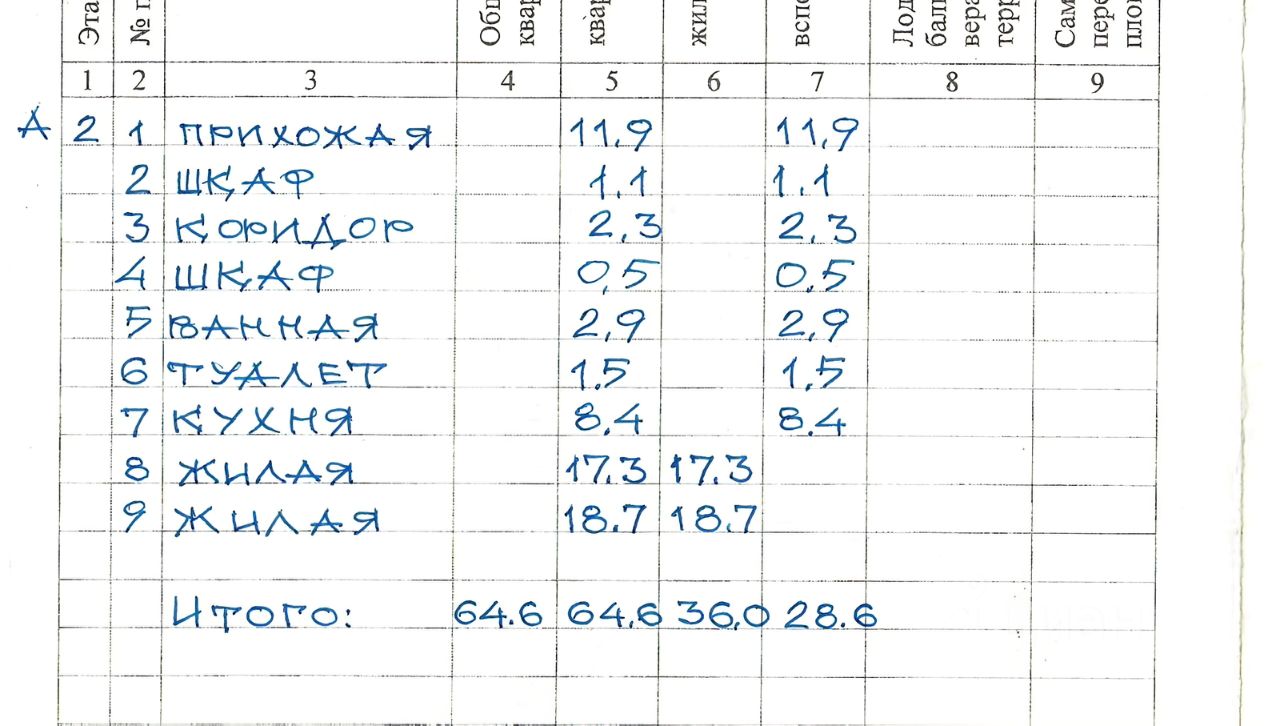 Эта № п Общ квар квар жил вспо Лод балк вера терр Сам пере пло
1 2 3 4 5 6 7 8 9
А 2 1 ПРИХОЖАЯ 11,9 11,9
2 ШКАФ 1,1 1,1
3 КОРИДОР 2,3 2,3
4 ШКАФ 0,5 0,5
5 ВАННАЯ 2,9 2,9
6 ТУАЛЕТ 1.5 1,5
7 КУХНЯ 8.4 8.4
8 ЖИЛАЯ 17.3 17.3
9 ЖИЛАЯ 18.7 18.7
ИТОГО: 64.6 64,6 36,0 28.6